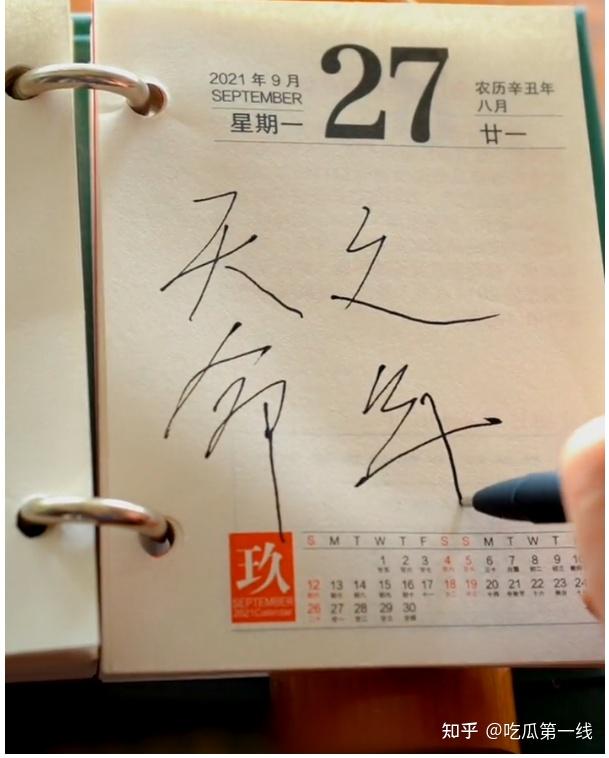 2021 年 9 月
SEPTEMBER
星期一
27
农历辛丑年
八月
廿一
天命
之年
玖
SEPTEMBER
2021Calendar
S M T W T F S S M T W T
1 2 3 4 5 6 7 8 9 10
12 13 14 15 16 17 18 19 20 21 22 23 24
26 27 28 29 30
知乎 @吃瓜第一线